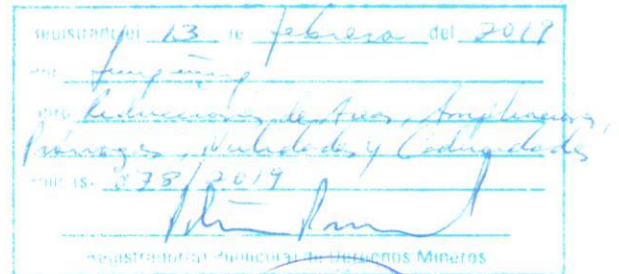 Registrado el 13 de febrero del 2019
Reducciones de Areas, Ampliaciones,
Prórrogas, Nulidades y Caducidades
378/2019
Registrador(a) Público(a) de Derechos Mineros